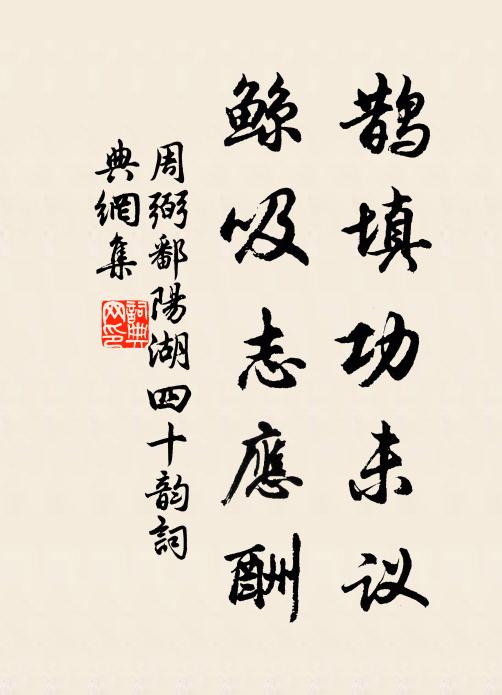 鹊填功未议
鲸吸志應酬
周弼鄱陽湖四十韵詞
典網集
詞典网印